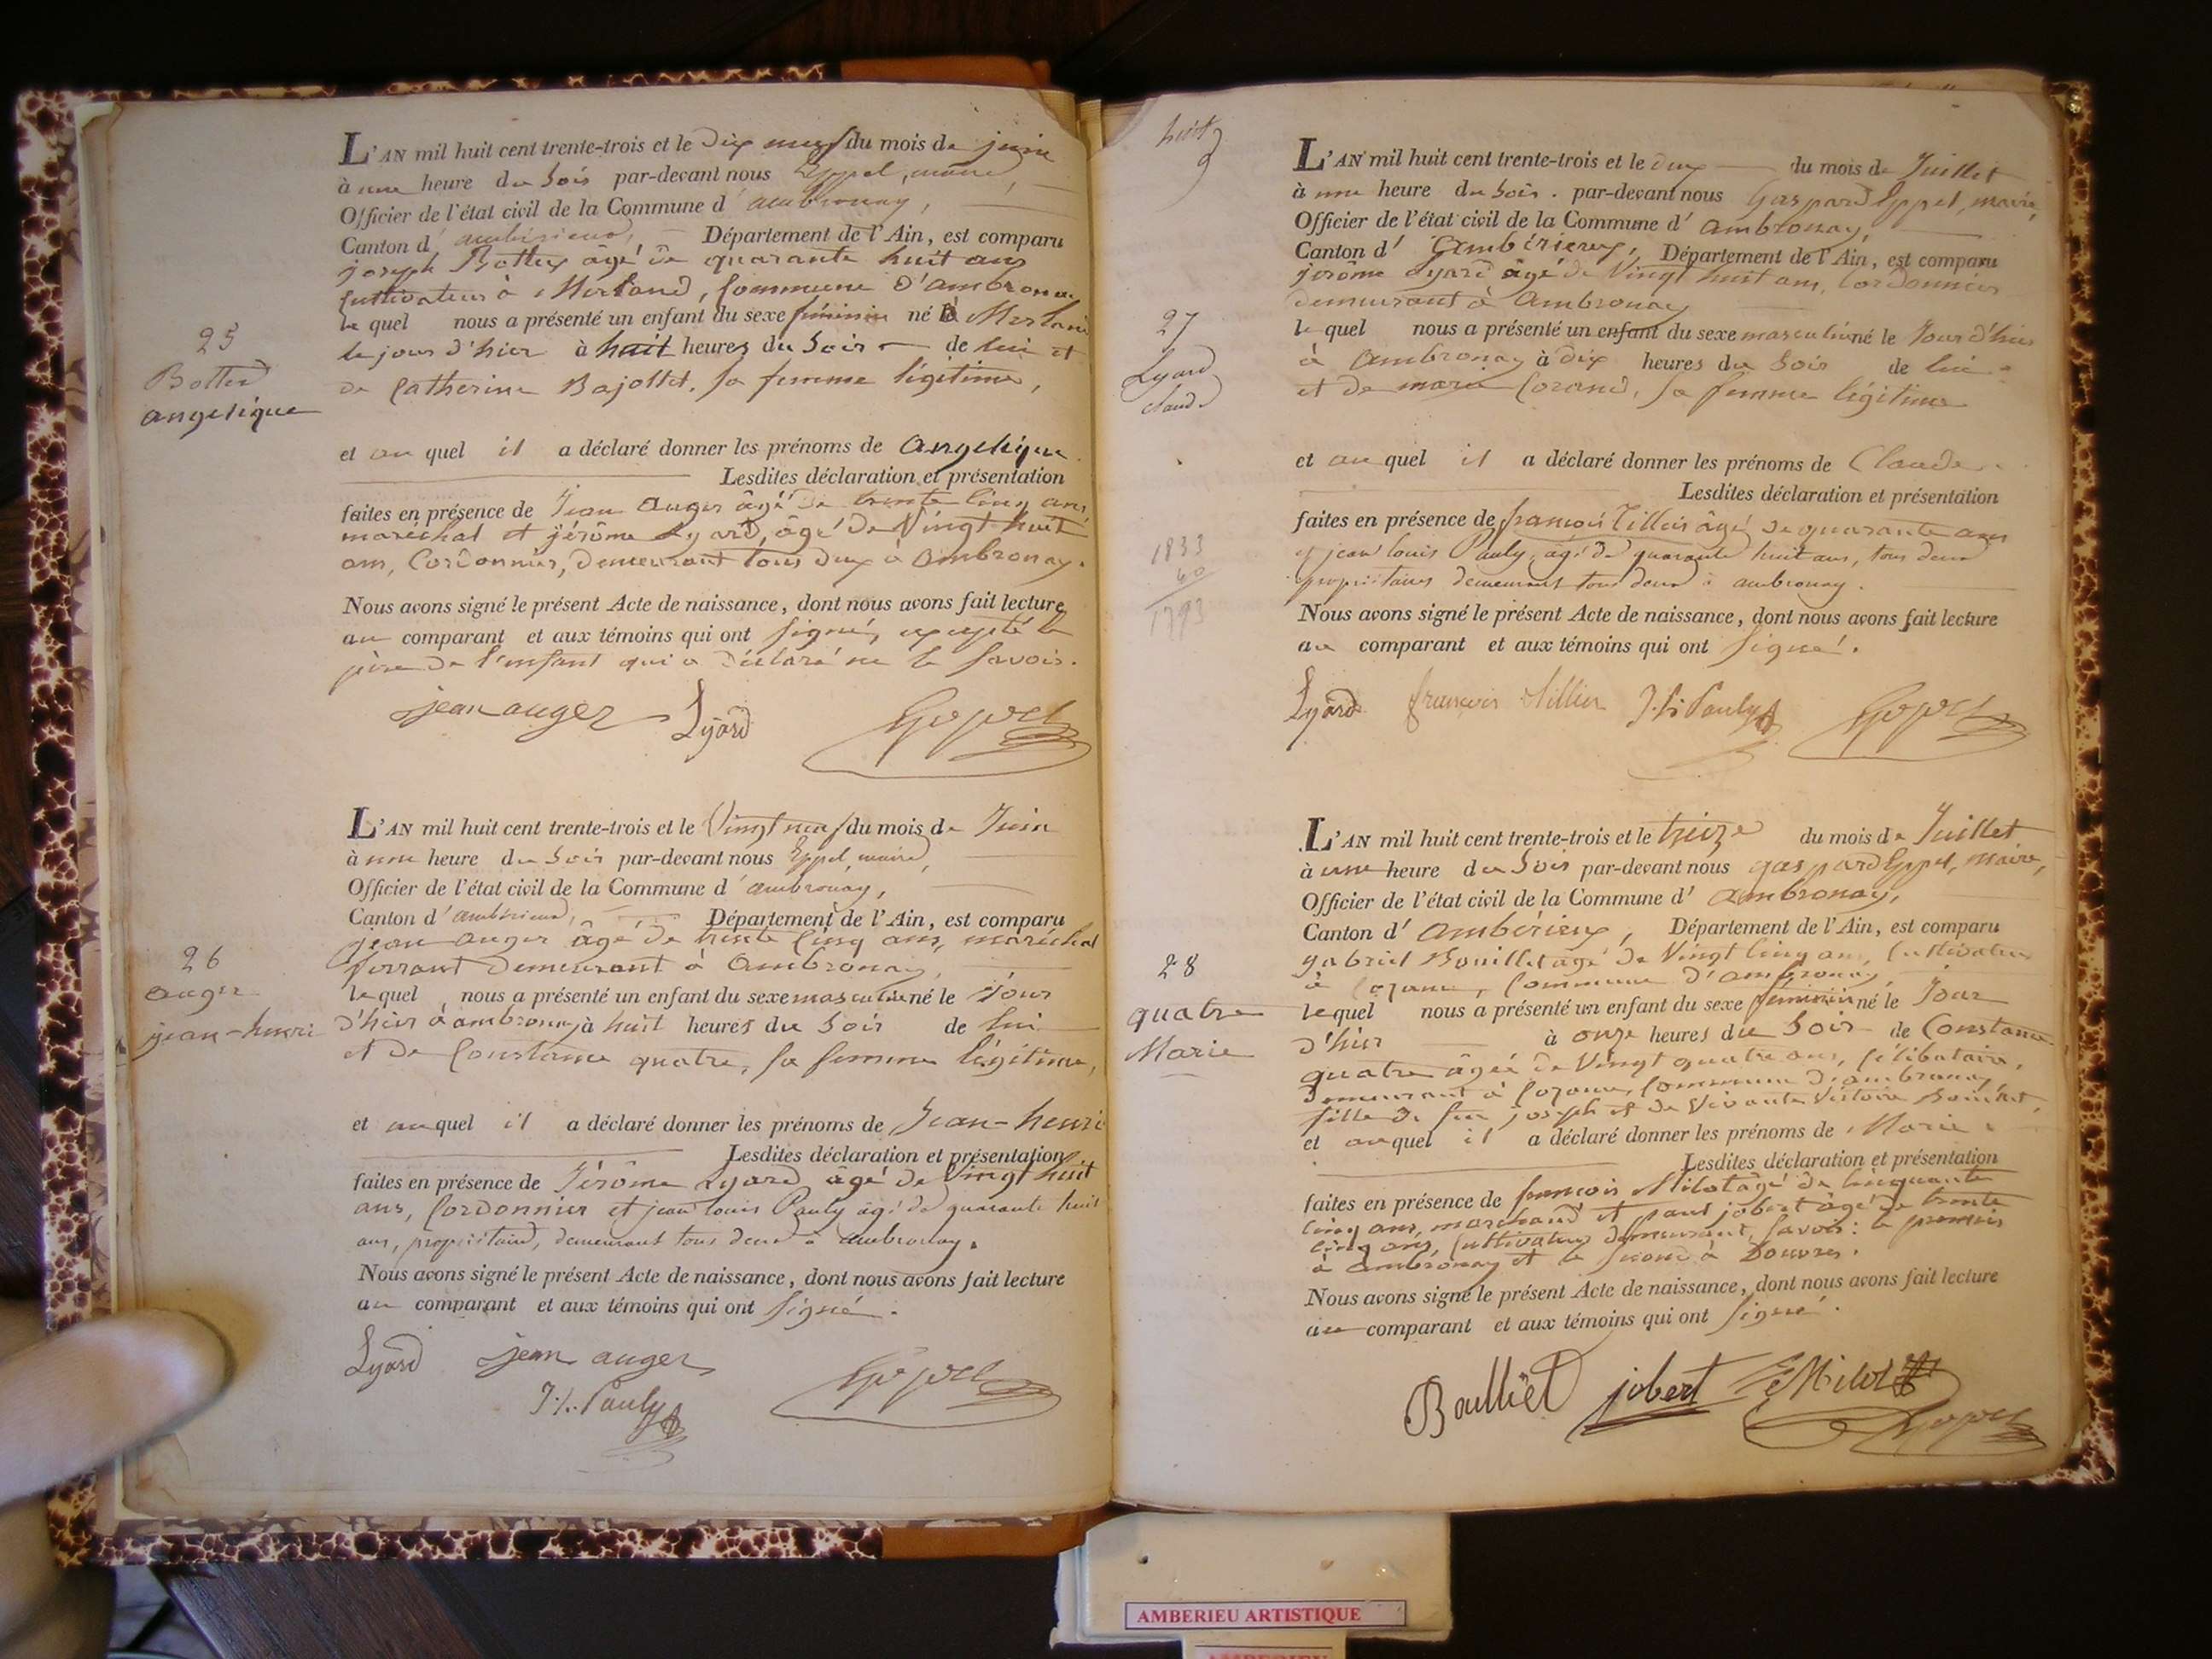 25
Bottex
angelique
L'AN mil huit cent trente-trois et le dix neuf du mois de juin
à une heure du Soir par-devant nous Eppel, maire,
Officier de l'état civil de la Commune d'ambronay,
Canton d'ambérieux, Département de l'Ain, est comparu
joseph Bottex âgé de quarante huit ans
Cultivateur à Merland, Commune d'ambronay
lequel nous a présenté un enfant du sexe féminin né à Merland
le jour d'hier à huit heures du Soir de lui et
de Catherine Bajollet, sa femme légitime,
et au quel il a déclaré donner les prénoms de Angelique
Lesdites déclaration et présentation
faites en présence de Jean Auger âgé de trente cinq ans,
maréchal et jérôme Lyard, âgé de Vingt huit
ans, Cordonnier, demeurant tous deux à Ambronay.
Nous avons signé le présent Acte de naissance, dont nous avons fait lecture
au comparant et aux témoins qui ont signé, excepté le
père de l'enfant qui a déclaré ne le savoir.
jean auger Lyard Eppel
26
auger
jean-henri
L'AN mil huit cent trente-trois et le Vingt neuf du mois de Juin
à une heure du Soir par-devant nous Eppel, maire,
Officier de l'état civil de la Commune d'ambronay,
Canton d'ambérieux, Département de l'Ain, est comparu
jean auger âgé de trente cinq ans, maréchal
ferrant demeurant à Ambronay,
lequel nous a présenté un enfant du sexe masculin né le Jour
d'hier à ambronay à huit heures du Soir de lui
et de Constance quatre, sa femme légitime,
et au quel il a déclaré donner les prénoms de Jean-henri
Lesdites déclaration et présentation
faites en présence de Jérôme Lyard âgé de Vingt huit
ans, Cordonnier et jean louis Pauly âgé de quarante huit
ans, propriétaire, demeurant tous deux à ambronay.
Nous avons signé le présent Acte de naissance, dont nous avons fait lecture
au comparant et aux témoins qui ont signé.
Lyard jean auger Eppel
J. L. Pauly
huit
27
Lyard
claude
L'AN mil huit cent trente-trois et le deux du mois de Juillet
à une heure du Soir. par-devant nous Gaspard Eppel, maire,
Officier de l'état civil de la Commune d'Ambronay,
Canton d'Ambérieux, Département de l'Ain, est comparu
jerôme Lyard âgé de Vingt huit ans, Cordonnier
demeurant à Ambronay
lequel nous a présenté un enfant du sexe masculin né le Jour d'hier
à Ambronay à dix heures du Soir de lui
et de marie Corand, sa femme légitime
et au quel il a déclaré donner les prénoms de Claude.
Lesdites déclaration et présentation
faites en présence de françois Tillier âgé de quarante ans
et jean louis Pauly, âgé de quarante huit ans, tous deux
propriétaires demeurant tous deux à ambronay.
1833
40
1793
Nous avons signé le présent Acte de naissance, dont nous avons fait lecture
au comparant et aux témoins qui ont signé.
Lyard françois tillier J. L. Pauly Eppel
28
quatre
Marie
L'AN mil huit cent trente-trois et le treize du mois de Juillet
à une heure du Soir par-devant nous gaspard Eppel, maire,
Officier de l'état civil de la Commune d'Ambronay,
Canton d'Ambérieux, Département de l'Ain, est comparu
gabriel Bouillet âgé de Vingt cinq ans, Cultivateur
à Cozance, Commune d'ambronay,
lequel nous a présenté un enfant du sexe féminin né le Jour
d'hier à onze heures du Soir de Constance
quatre âgée de Vingt quatre ans, Célibataire,
demeurant à Cozance, Commune d'ambronay,
fille de feu joseph et de vivante Victoire
et au quel il a déclaré donner les prénoms de Marie.
Lesdites déclaration et présentation
faites en présence de françois Milot âgé de cinquante
cinq ans, marchand et paul jobert âgé de trente
cinq ans, Cultivateur demeurant, savoir: le premier
à ambronay et le second à Douvres.
Nous avons signé le présent Acte de naissance, dont nous avons fait lecture
au comparant et aux témoins qui ont signé.
Boulliet jobert Milot
Eppel
AMBERIEU ARTISTIQUE
AMBERIEU